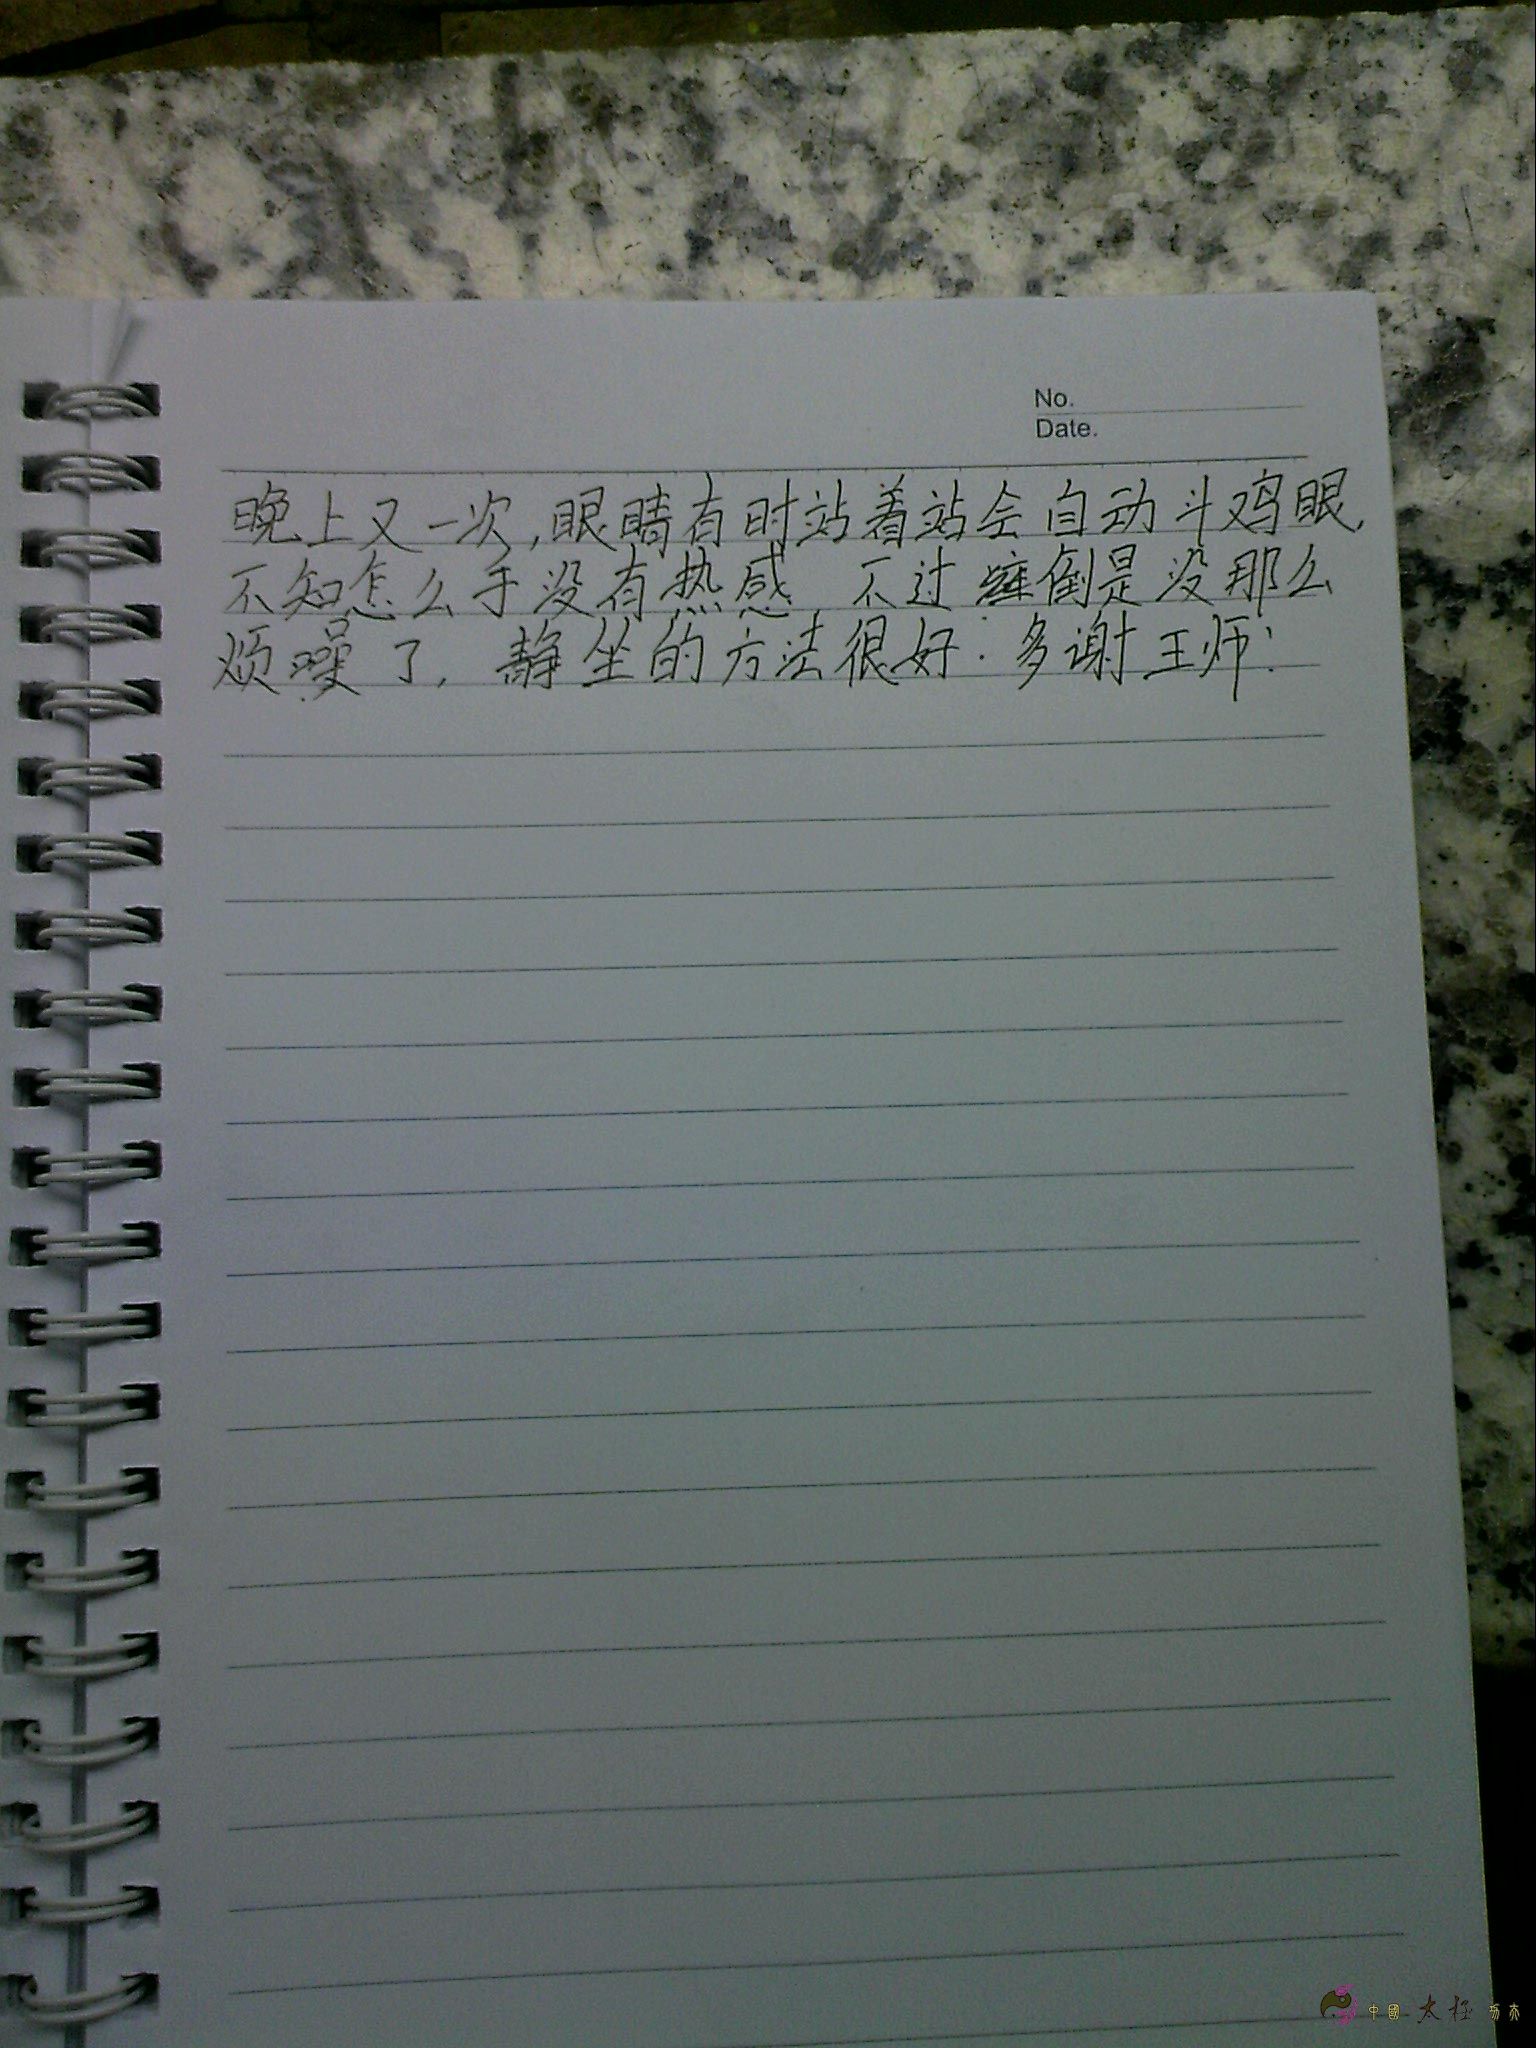 No.
Date.
晚上又一次,眼睛有时站着站会自动斗鸡眼,
不知怎么手没有热感,不过 倒是没那么
烦噪了,静坐的方法很好.多谢王师!
中國太极